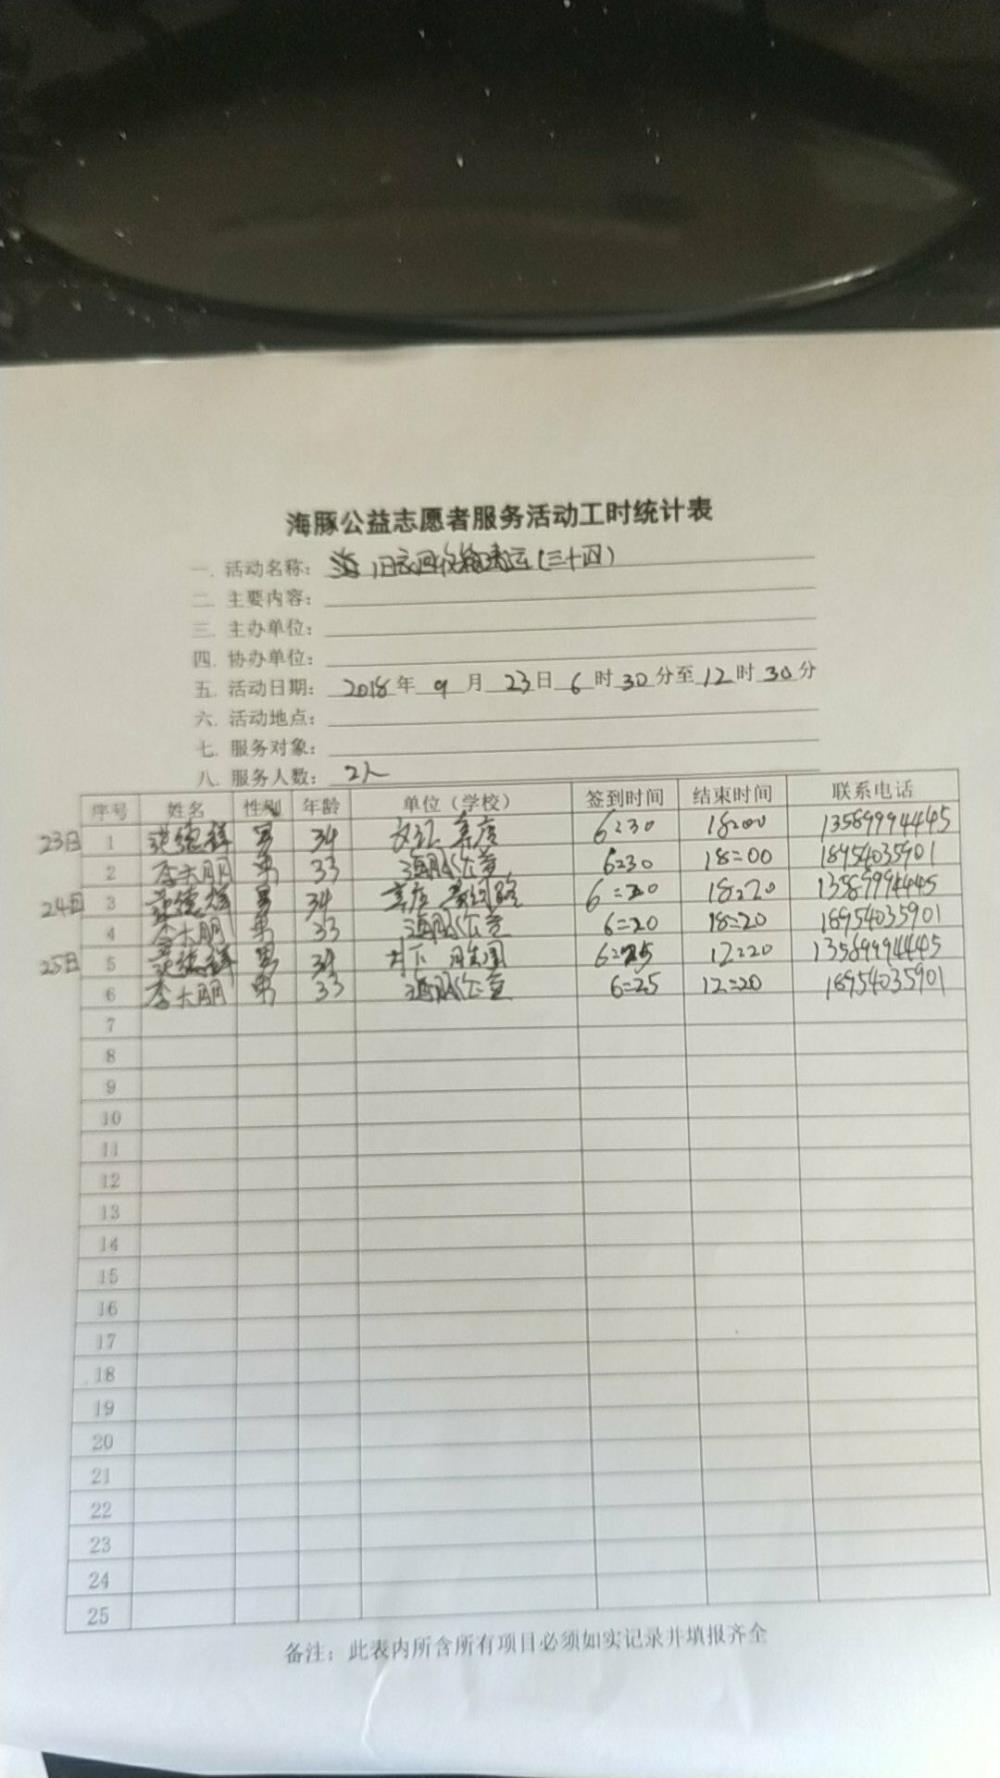 海豚公益志愿者服务活动工时统计表
一. 活动名称: 旧衣回收箱清运(三十四)
二. 主要内容:
三. 主办单位:
四. 协办单位:
五. 活动日期: 2018年 9月 23日 6时30分至12时30分
六. 活动地点:
七. 服务对象:
八. 服务人数: 2人
序号 姓名 性别 年龄 单位(学校) 签到时间 结束时间 联系电话
23日 1 男 34 6:30 18:00 13589994445
2 李大朋 男 33 海豚公益 6:30 18:00 18954035901
24日 3 男 34 6:20 18:20 13589994445
4 李大朋 男 33 海豚公益 6:20 18:20 18954035901
25日 5 男 34 6:25 12:20 13589994445
6 李大朋 男 33 海豚公益 6:25 12:20 18954035901
7
8
9
10
11
12
13
14
15
16
17
18
19
20
21
22
23
24
25
备注: 此表内所含所有项目必须如实记录并填报齐全